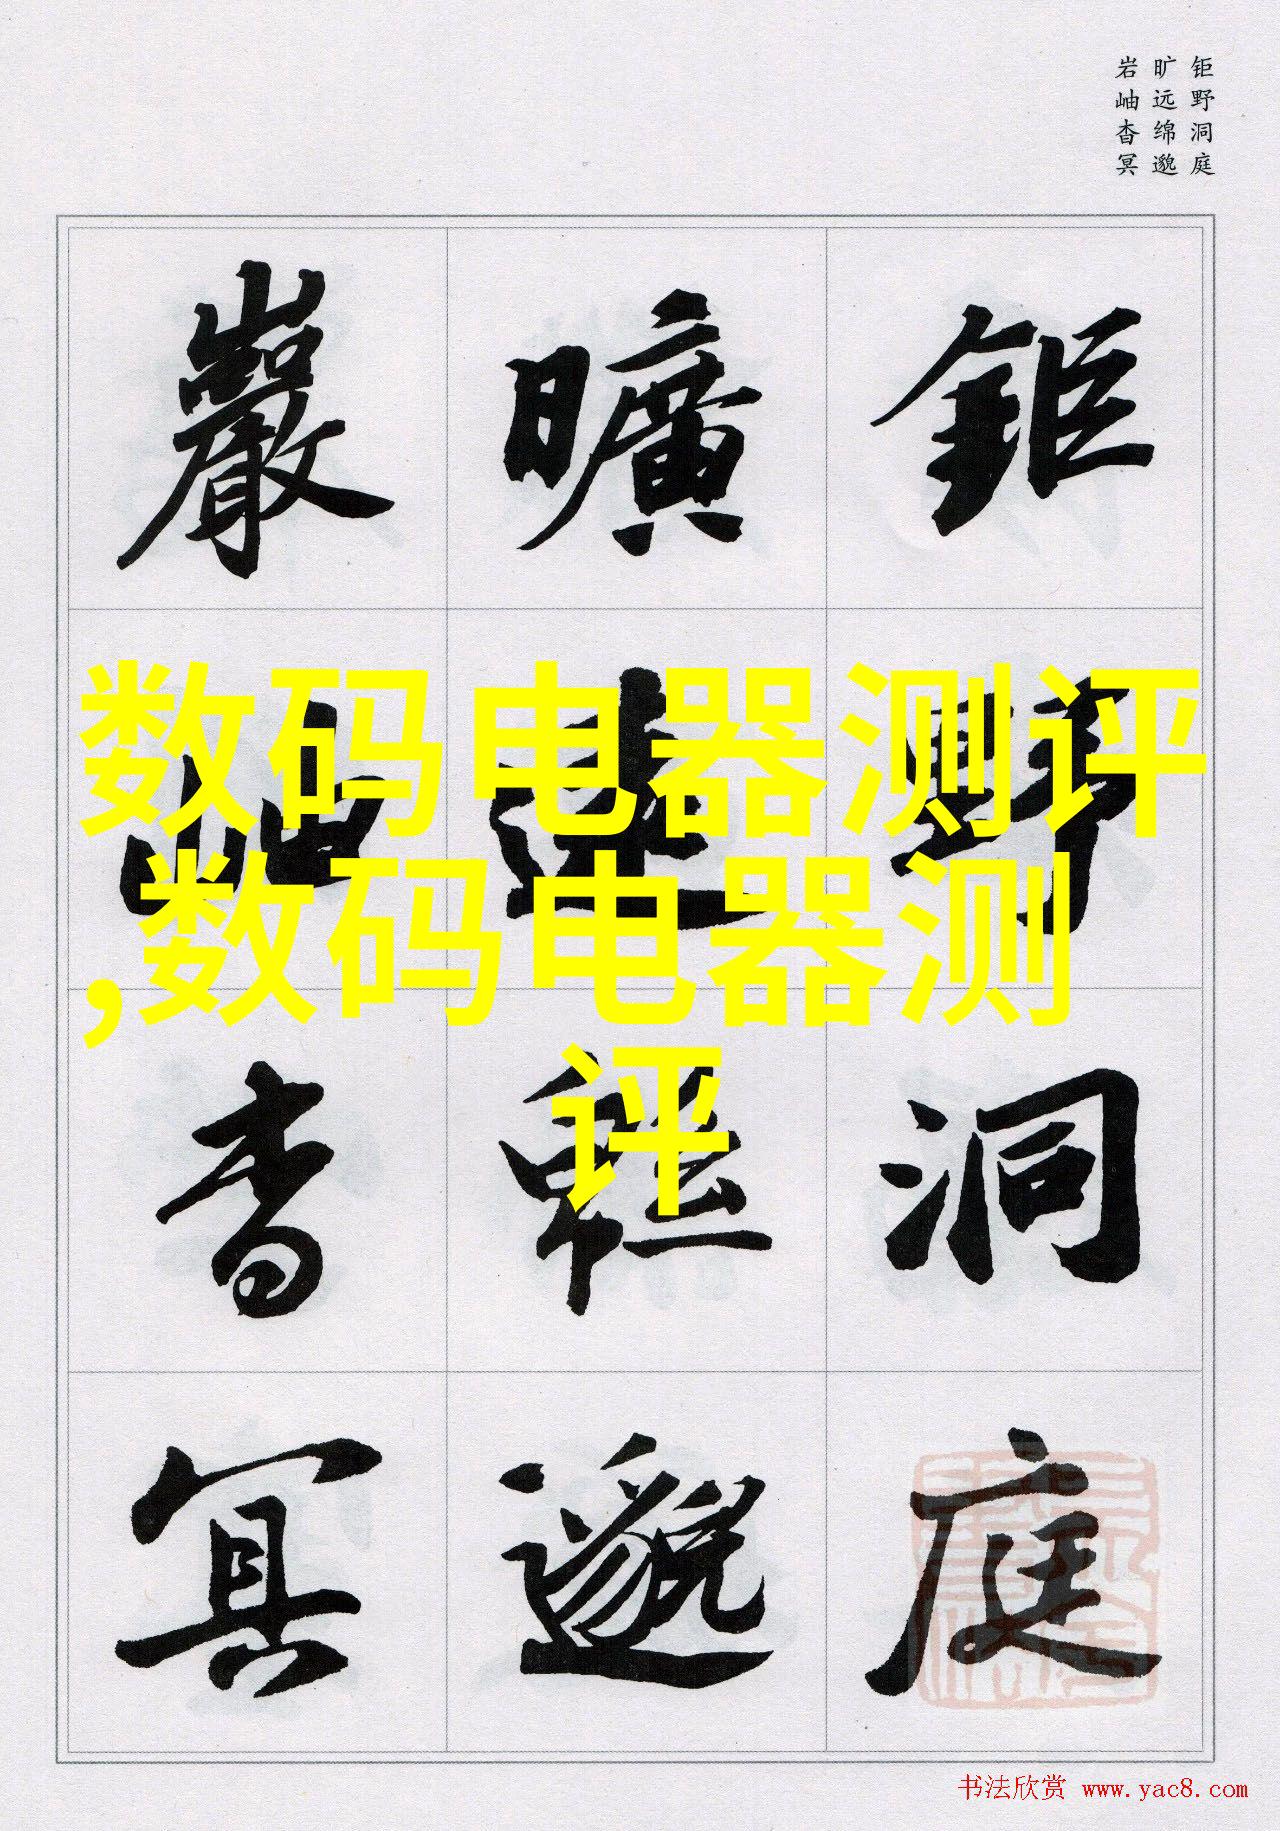 钜野洞庭
旷远绵邈
岩岫杳冥
鉅野洞庭
曠遠緜邈
巖岫杳冥
数码电器测评
,数码电器测
评
书法欣赏 www.yac8.com